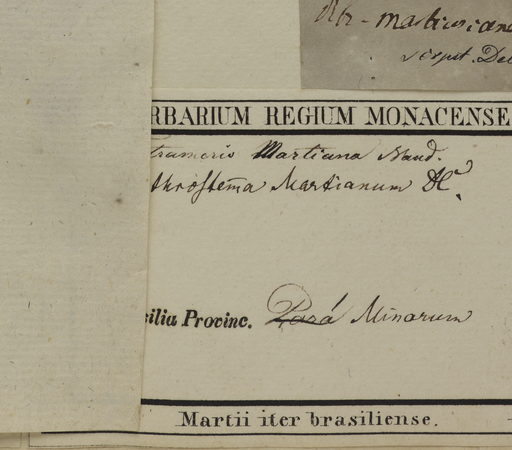 Martiana
script. Dec
RBARIUM REGIUM MONACENSE
trameris Martiana Naud.
throstema Martianum DC.
silia Provinc. Pará Minarum
Martii iter brasiliense.